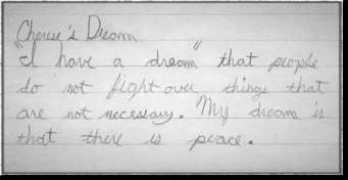 Cherese's Dream
"I have a dream" that people
do not fight over things that
are not necessary. My dream is
that there is peace.